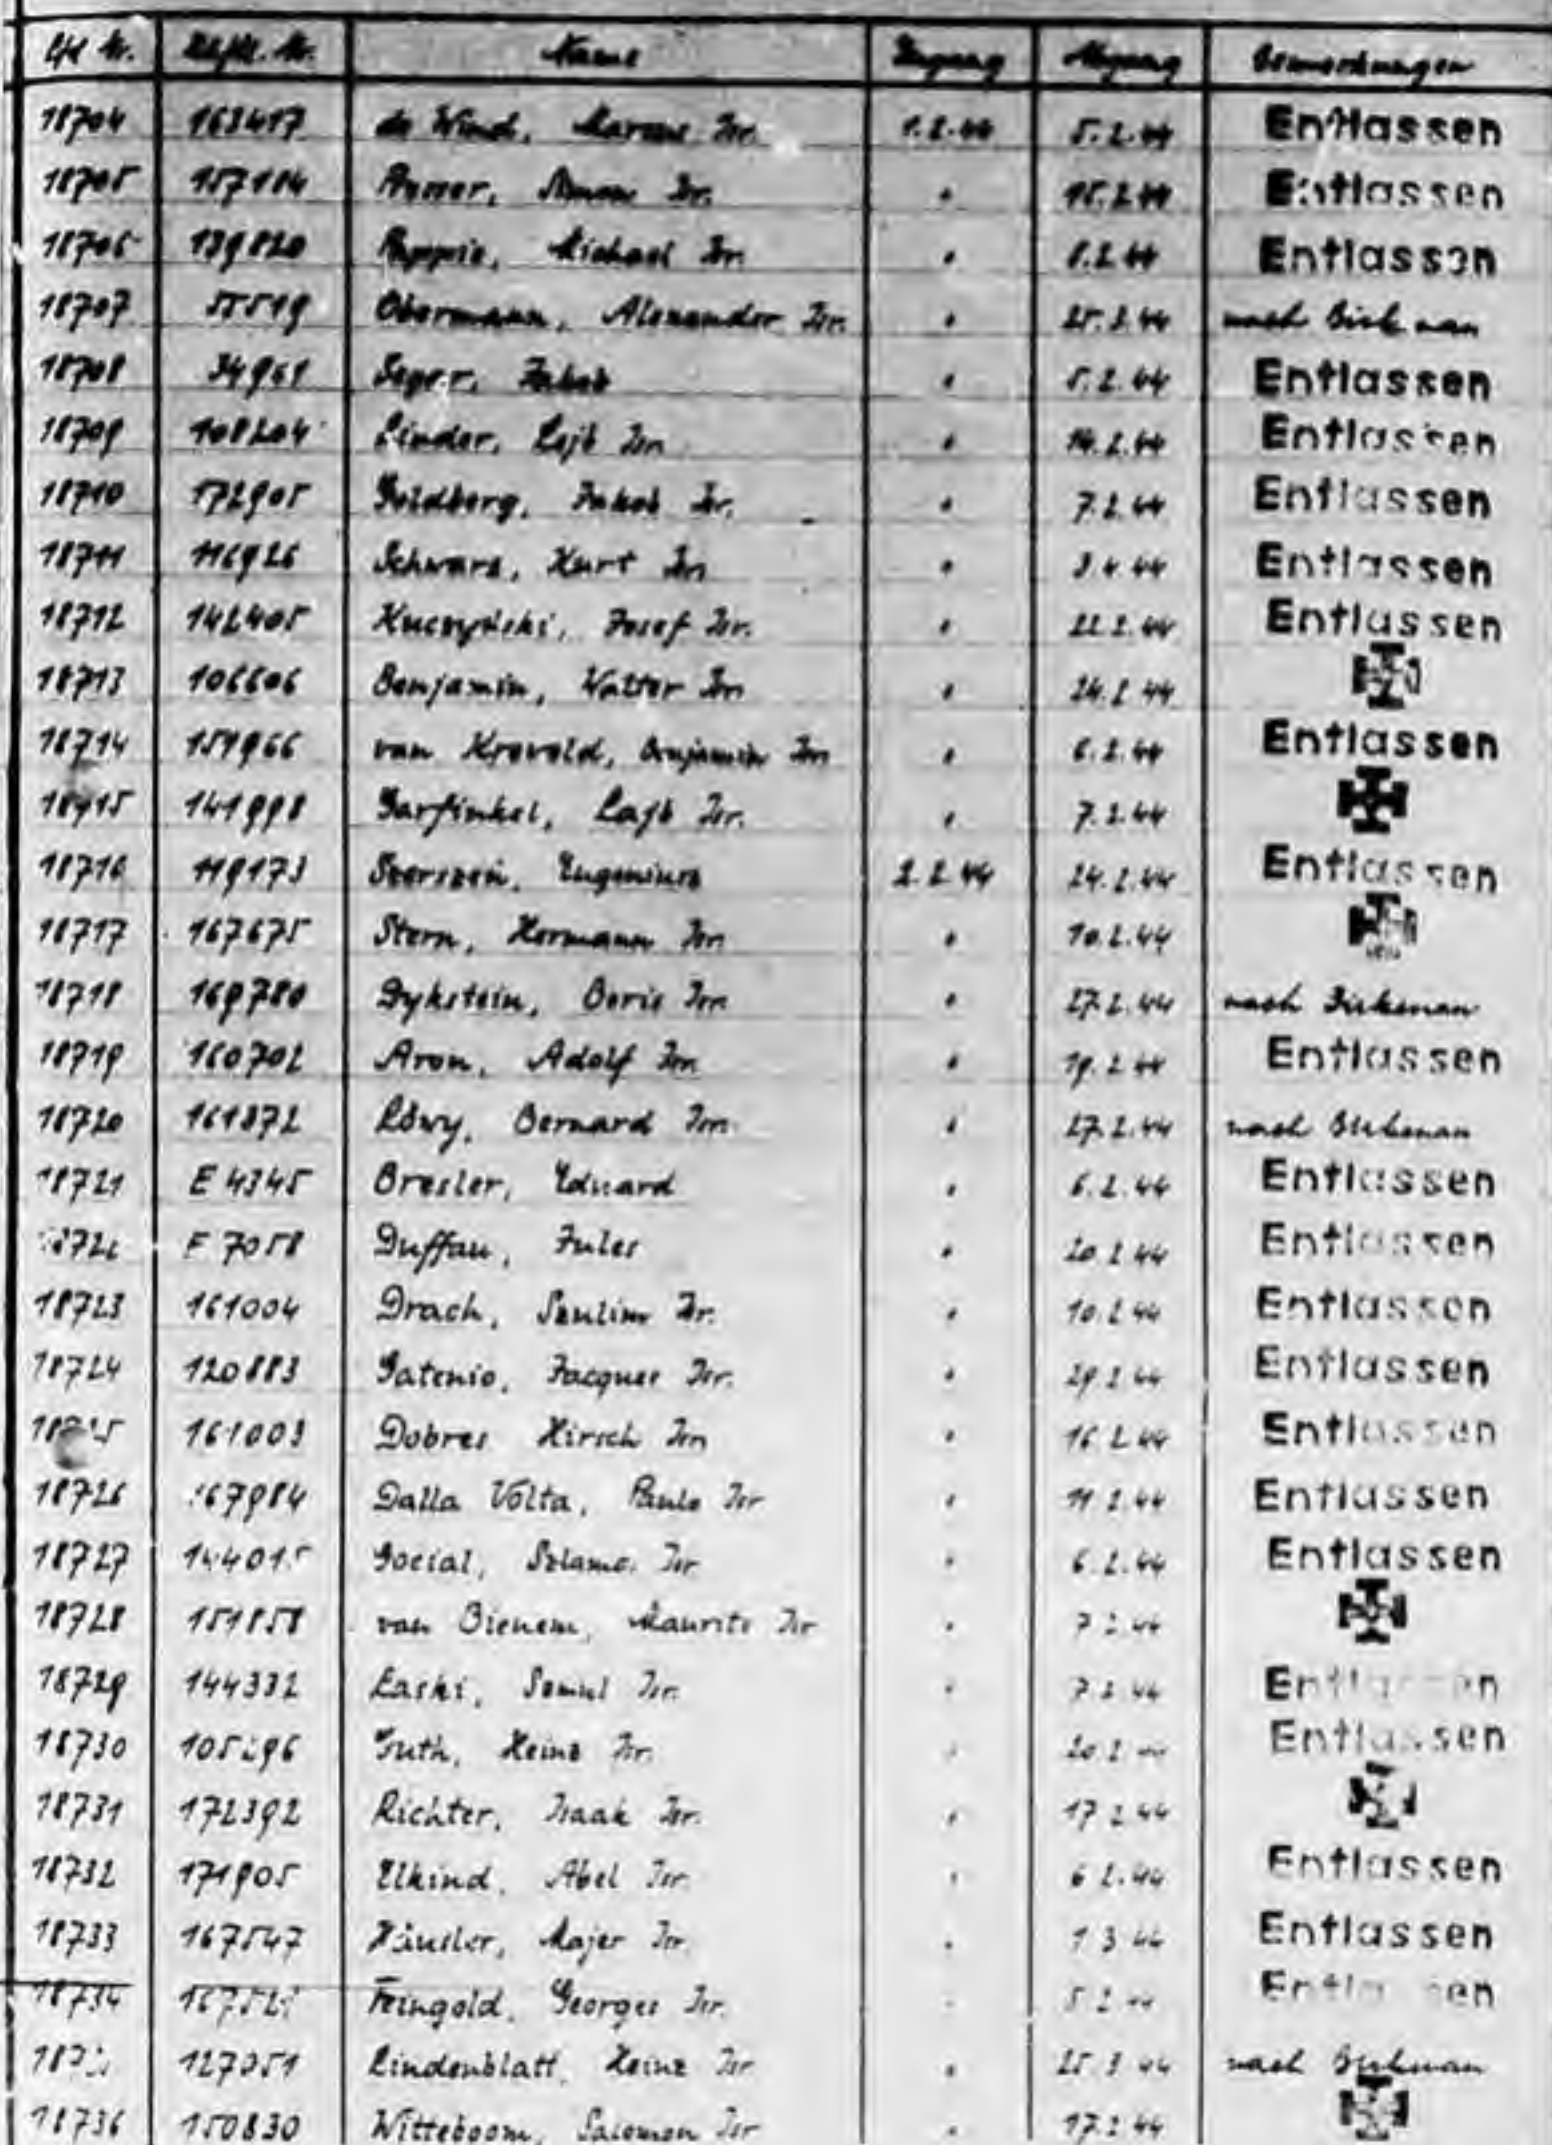 Lfd Nr. Häftl. Nr. Name Zugang Abgang Bemerkungen
18704 163417 de Wind, Marcus Isr. 1.2.44 5.2.44 Entlassen
18705 157184 Isr. " 15.2.44 Entlassen
18706 139820 Michael Isr. " 8.2.44 Entlassen
18707 55519 Obermann, Alexander Isr. " 25.3.44 nach Birkenau
18708 34961 Jakob " 5.2.44 Entlassen
18709 108204 Linder, Lejb Isr. " 14.2.44 Entlassen
18710 172905 Goldberg, Jakob Isr. " 7.2.44 Entlassen
18711 116926 Schwarz, Kurt Isr. " 3.4.44 Entlassen
18712 142405 Kuczyński, Josef Isr. " 22.2.44 Entlassen
18713 106606 Benjamin, Walter Isr. " 24.2.44
18714 151966 van Kreveld, Benjamin Isr. " 6.2.44 Entlassen
18715 141998 Garfinkel, Lajb Isr. " 7.2.44
18716 119173 Eugeniusz 2.2.44 24.2.44 Entlassen
18717 167675 Stern, Hermann Isr. " 10.2.44
18718 169780 Dykstein, Boris Isr. " 27.2.44 nach Birkenau
18719 160702 Aron, Adolf Isr. " 19.2.44 Entlassen
18720 161872 Löwy, Bernard Isr. " 27.2.44 nach Birkenau
18721 E 4345 Bresler, Eduard " 6.2.44 Entlassen
18722 F 7058 Duffau, Jules " 20.2.44 Entlassen
18723 161004 Drach, Saulim Isr. " 10.2.44 Entlassen
18724 120883 Gatenio, Jacques Isr. " 29.2.44 Entlassen
18725 161003 Dobres Hirsch Isr. " 16.2.44 Entlassen
18726 167984 Dalla Volta, Paulo Isr " 11.2.44 Entlassen
18727 144015 Gocial, Szlama Isr " 6.2.44 Entlassen
18728 151858 van Bienem, Maurits Isr " 7.2.44
18729 144332 Łaski, Isr. " 7.2.44 Entlassen
18730 105296 Guth, Heinz Isr. " 20.2.44 Entlassen
18731 172392 Richter, Isaak Isr. " 17.2.44
18732 171905 Elkind, Abel Isr. " 6.2.44 Entlassen
18733 167547 Häusler, Majer Isr. " 1.3.44 Entlassen
18734 Feingold, Georges Isr. " 5.2.44 Entlassen
127051 Lindenblatt, Heinz Isr " 25.3.44 nach Birkenau
18736 150830 Witteboom, Salomon Isr " 17.2.44